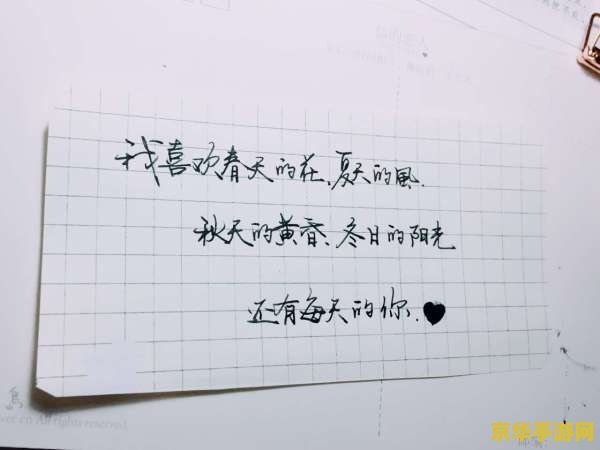 我喜欢春天的花、夏天的風、
秋天的黄昏、冬日的阳光
还有每天的你、♥
ver en All rights reserved.
京华手游网